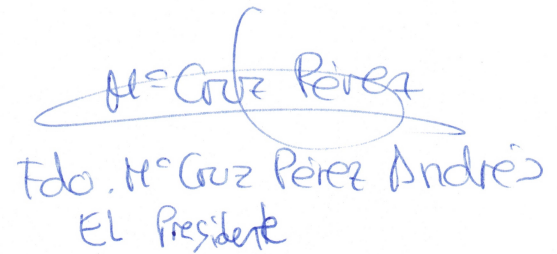 Mª Cruz Pérez
Fdo. Mª Cruz Pérez Andrés
El Presidente